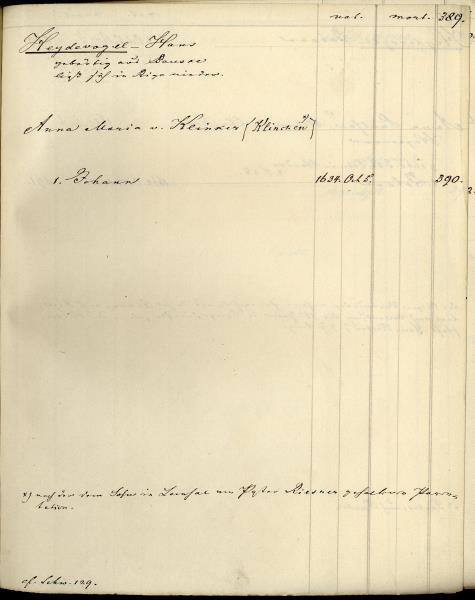 nat. mort. 389.
Heydevogel – Hans
gebürtig aus Bauske
ließ sich in Riga nieder.
Anna Maria v. Klinker {Klinchen x)}
1. Johann 1634. Oct. 5. 390.
x) nach der dem Sohne in Lemsal von Pastor Riesner gehaltenen Paren-
tation.
cf. Schw. 129.